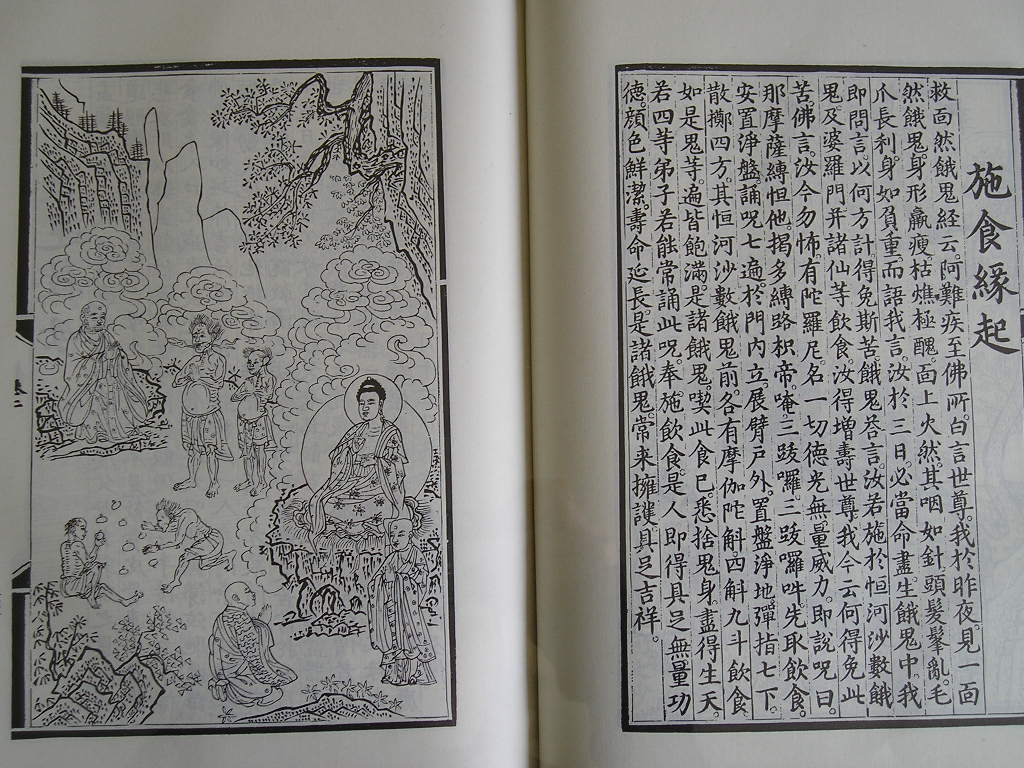 施食緣起
救面然餓鬼經云。阿難疾至佛所。白言世尊。我於昨夜。見一面
然餓鬼身形羸瘦。枯燋極醜。面上火然。其咽如針。頭髮髼亂。毛
爪長利。身如負重。而語我言。汝於三日。必當命盡。生餓鬼中。我
即問言。以何方計得免斯苦。餓鬼荅言。汝若施於恒河沙數餓
鬼及婆羅門并諸仙等飲食。汝得增壽。世尊我今云何得免此
苦。佛言。汝今勿怖。有陀羅尼。名一切德光無量威力。即說呪曰。
那摩薩縛怛他。揭多縛路枳帝。唵三跋囉。三跋囉吽。先取飲食。
安置淨盤。誦呪七遍。於門內立。展臂戶外。置盤淨地。彈指七下。
散擲四方。其恒河沙數餓鬼前。各有摩伽陀斛四斛九斗飲食
如是鬼等。遍皆飽滿。是諸餓鬼。喫此食已。悉捨鬼身。盡得生天。
若四等弟子。若能常誦此呪。奉施飲食。是人即得具足無量功
德。顏色鮮潔。壽命延長。是諸餓鬼。常来擁護。具足吉祥。